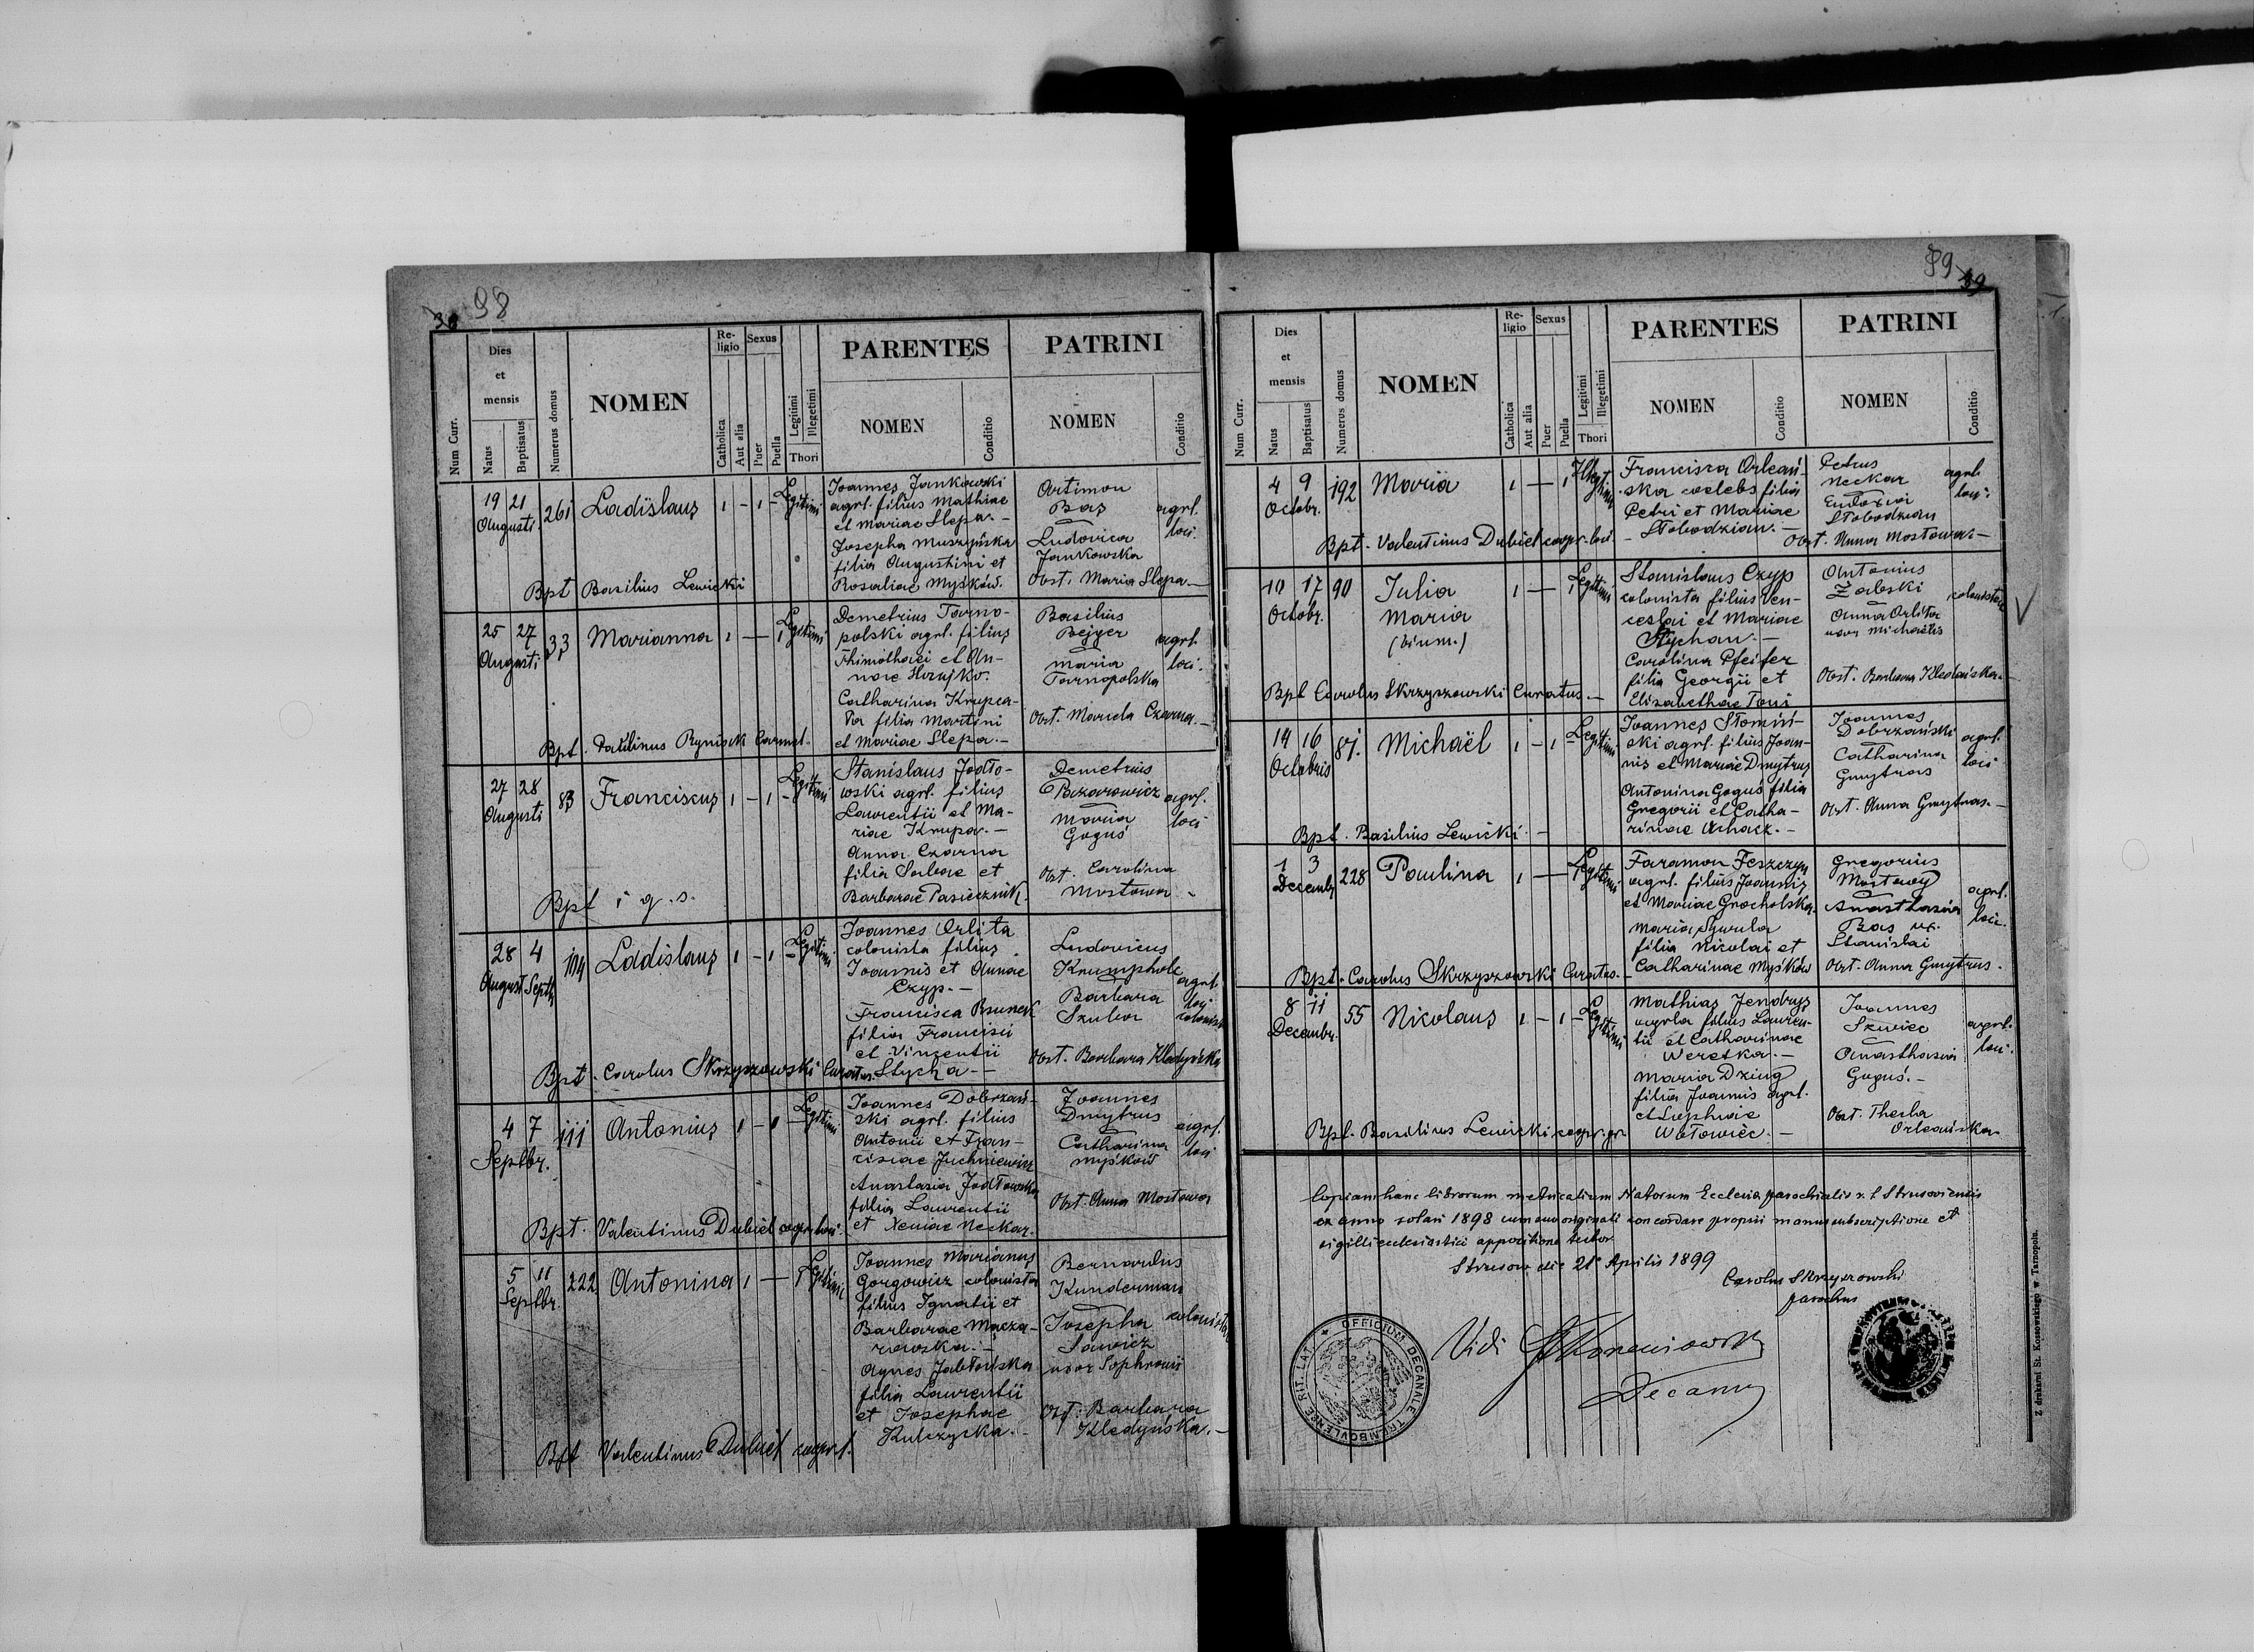 38 98
Num Curr.
Dies
et
mensis
Natus
Baptisatus
Numerus domus
NOMEN
Religio
Catholica
Aut alia
Sexus
Puer
Puella
Legitimi
Illegetimi
Thori
PARENTES
NOMEN
Conditio
PATRINI
NOMEN
Conditio
19 21
Augusti
261
Ladislaus
1 - 1 -
Legitimi
Joannes Jankowski
agrl. filius Mathiae
et Mariae Slepa. -
Josepha Muszyńska
filia Augustini et
Rosaliae Myśków.
Artimon
Bas
Ludovica
Jankowska
Obst. Maria Slepa -
agrl.
loci.
Bpt Basilius Lewicki
25 27
Augusti
33
Marianna
1 - 1
Legitimi
Demetrius Tarno-
polski agrl. filius
Thimothaei et An-
nae Hrajko.
Catharina Krupca-
ta filia Martini
et Mariae Slepa. -
Basilius
Bejger
Maria
Tarnopolska
Obst. Mariela Czarna. -
agrl.
loci.
Bpt. Paulinus Rynisek Carmel.
27 28
Augusti
83
Franciscus
1 - 1 -
Legitimi
Stanislaus Jodło-
wski agrl. filius
Laurentii et Ma-
riae Krupa. -
Anna Czarna
filia Sabae et
Barbarae Pasiecznik.
Demetrius
Bazarowicz
Maria
Goguś
Obt. Carolina
Mostowa -
agrl.
loci
Bpt i q. s.
28 4
August Septb
104
Ladislaus
1 - 1 -
Legitimi
Joannes Orlita
colonista filius
Joannis et Annae
Czyp. -
Francisca Brunek
filia Francisci
et Vinzentii
Stycha -
Ludovicus
Krumpholc
Barbara
Szuba
Obst. Barbara Kledyńska
agrl.
loci
colonist
Bpt. Carolus Skrzyszowski Curatus.
4 7
Septbr.
111
Antonius
1 - 1 -
Legitimi
Joannes Dobrzań-
ski agrl. filius
Antonii et Fran-
ciscae Juchniewicz
Anastasia Jodłowska
filia Laurentii
et Xeniae Neckar.
Joannes
Dmytrus
Catharina
Myśków
Obst. Anna Mostowa
agrl.
loci
Bpt. Valentinus Dubiel coopr. loci.
5 11
Septbr.
222
Antonina
1 - 1
Legitimi
Joannes Marianus
Gorgowicz colonista
filius Ignatii et
Barbarae Mącza-
rowska. -
Agnes Jabłońska
filia Laurentii
et Josephae
Kulczycka. -
Bernardus
Kunderman
Josepha
Sawicz
uxor Sophronii
Obst. Barbara
Kledyńska. -
colonistae
Bpt Valentinus Dubiel coopr. l.
89 39
Num Curr.
Dies
et
mensis
Natus
Baptisatus
Numerus domus
NOMEN
Religio
Catholica
Aut alia
Sexus
Puer
Puella
Legitimi
Illegetimi
Thori
PARENTES
NOMEN
Conditio
PATRINI
NOMEN
Conditio
4 9
Octobr.
192
Maria
1 - 1
Illegitimi
Francisca Orleań-
ska coelebs filia
Petri et Mariae
Słobodzian. -
Petrus
Neckar
Eudoxia
Słobodzian
Obst. Anna Mostowa -
agrl.
loci.
Bpt. Valentinus Dubiel coopr. loci.
10 17
Octobr.
90
Julia
Maria
(binm.)
1 - 1
Legitimi
Stanislaus Czyp
colonista filius Ven-
ceslai et Mariae
Rychan. -
Carolina Pfeifer
filia Georgii et
Elisabethae Toni
Antonius
Załoski
Anna Orlita
uxor Michaëlis
Obst. Barbara Kledańska. -
colonistae
Bpt Carolus Skrzyszowski Curatus. -
14 16
Octobris
87.
Michaël
1 - 1 -
Legitimi
Joannes Słomiń-
ski agrl. filius Joan-
nis et Mariae Dmytrus
Antonina Goguś filia
Gregorii et Catha-
rinae Achacz. -
Joannes
Dobrzański
Catharina
Gmytras
Obst. Anna Gmytras. -
agrl.
loci
Bpt. Basilius Lewicki. -
1 3
Decemb
228
Paulina
1 - 1
Legitimi
Faramon Feszczyn
agrl. filius Joannis
et Mariae Grocholska.
Maria Sywula
filia Nicolai et
Catharinae Myśków
Gregorius
Mostowy
Anasthasia
Bas ux.
Stanislai
Obst. Anna Gmytrus.
agrl.
loci.
Bpt. Carolus Skrzyszowski Curatus. -
8 11
Decembr.
55
Nikolaus
1 - 1 -
Legitimi
Mathias Jendrys
agrla filius Lauren-
tii et Catharinae
Weretka. -
Maria Dziug
filia Joannis agrl.
et Euphroiae
Wołowiec. -
Joannes
Szwiec
Anasthasia
Goguś. -
Obst. Thecla
Orleańska
agrl.
loci.
Bpt. Basilius Lewicki coopr. gr.
Copiam hanc librorum metricalium Natorum Ecclesia parochialis r. l. Strusoviensis
ex anno solari 1898 cum suo originali concordare propria manus subscriptione et
sigilli ecclesiastici appositione testor.
Strusow die 21 Aprilis 1899
Carolus Skrzyszowski
parochus
Vidi
Decanus
OFFICIUM DECANALE TREMBOVLENSE RIT. LAT.
Z drukarni St. Kossowskiego w Tarnopolu.